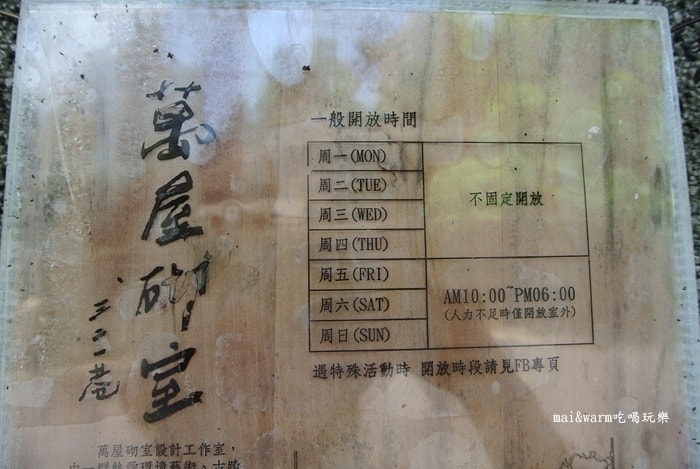 萬屋砌室
、三二一巷
一般開放時間
周一(MON)
周二(TUE)
周三(WED)
周四(THU)
不固定開放
周五(FRI)
周六(SAT)
周日(SUN)
AM10:00~PM06:00
(人力不足時僅開放室外)
遇特殊活動時 開放時段請見FB專頁
萬屋砌室設計工作室,
mai&warm吃喝玩樂